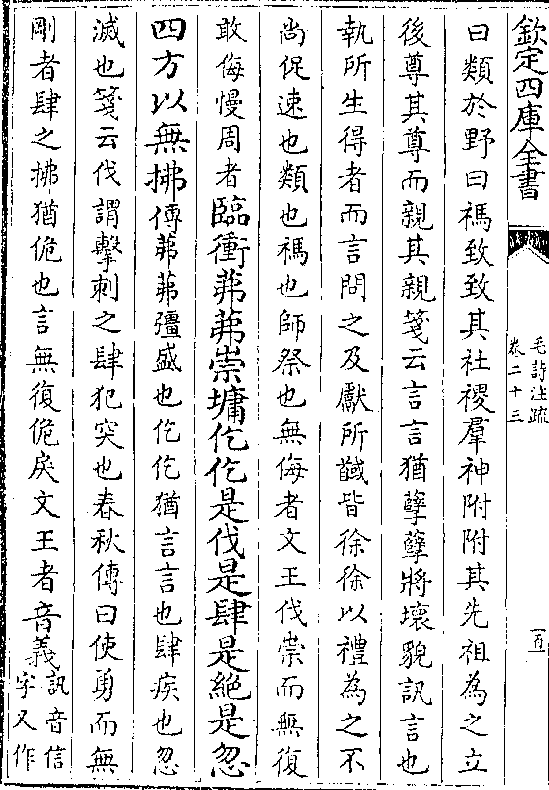 欽定四庫全書
毛詩注疏
卷二十三
一百
曰類於野曰禡致致其社稷羣神附附其先祖為之立
後尊其尊而親其親箋云言言猶孽孽將壞貌訊言也
執所生得者而言問之及獻所馘皆徐徐以禮為之不
尚促速也類也禡也師祭也無侮者文王伐崇而無復
敢侮慢周者臨衝茀茀崇墉仡仡是伐是肆是絶是忽
四方以無拂傳茀茀彊盛也仡仡猶言言也肆疾也忽
滅也箋云伐謂擊刺之肆犯突也春秋傳曰使勇而無
剛者肆之拂猶佹也言無復佹戾文王者音義訊音信
字又作